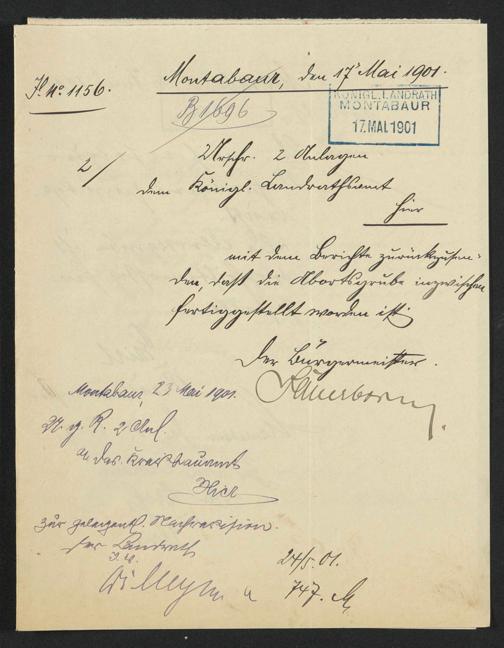 J. No. 1156.
Montabaur, den 17 Mai 1901.
B 1696
KÖNIGL. LANDRATH
MONTABAUR
17. MAI. 1901
2/
Urschr. 2 Anlagen
dem Königl. Landrathsamt
hier
mit dem Berichte zurückzusen-
den, daß die Abortsgrube inzwischen
fertiggestellt worden ist.
Der Bürgermeister.
Sauerborn
Montabaur, 23 Mai 1901.
U. g. R. 2 Anl.
an das Kreisbauamt
Hier
zur gelegentl. Nachrevision.
Der Landrath
24/5. 01.
747. M